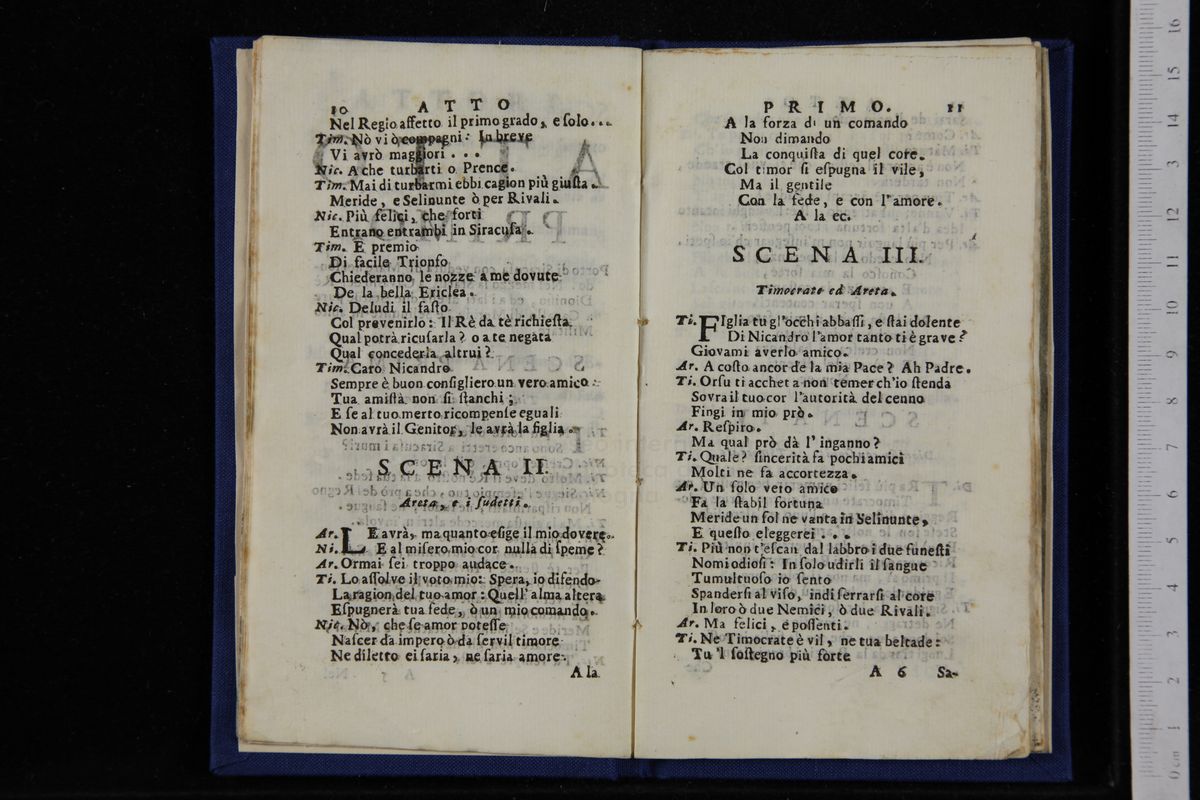 10 ATTO
Nel Regio affetto il primo grado, e ſolo...
Tim. Nò vi ò compagni: In breve
Vi avrò maggiori . . .
Nic. A che turbarti o Prence.
Tim. Mai di turbarmi ebbi cagion più giuſta.
Meride, e Selinunte ò per Rivali.
Nic. Più felici, che forti
Entrano entrambi in Siracuſa.
Tim. E premio
Di facile Trionfo
Chiederanno le nozze a me dovute
De la bella Ericlea.
Nic. Deludi il faſto
Col prevenirlo: Il Rè da tè richieſta
Qual potrà ricuſarla? o a te negata
Qual concederla altrui?
Tim. Caro Nicandro
Sempre è buon conſigliero un vero amico:
Tua amiſtà non ſi ſtanchi;
E ſe al tuo merto ricompenſe eguali
Non avrà il Genitor, le avrà la figlia.
SCENA II.
Areta, e i ſudetti.
Ar. LE avrà, ma quanto eſige il mio dovere.
Ni. E al miſero mio cor nulla di ſpeme?
Ar. Ormai ſei troppo audace.
Ti. Lo aſſolve il voto mio: Spera, io difendo
La ragion del tuo amor: Quell'alma altera
Eſpugnerà tua fede, ò un mio comando.
Nic. Nò, che ſe amor poteſſe
Naſcer da impero ò da ſervil timore
Ne diletto ei ſaria, ne ſaria amore.
A la
PRIMO. 11
A la forza di un comando
Non dimando
La conquiſta di quel core.
Col timor ſi eſpugna il vile,
Ma il gentile
Con la fede, e con l'amore.
A la ec.
SCENA III.
Timocrate ed Areta.
Ti. FIglia tu gl'occhi abbaſſi, e ſtai dolente
Di Nicandro l'amor tanto ti è grave?
Giovami averlo amico.
Ar. A coſto ancor de la mia Pace? Ah Padre.
Ti. Orſu ti accheta non temer ch'io ſtenda
Sovra il tuo cor l'autorità del cenno
Fingi in mio prò.
Ar. Reſpiro.
Ma qual prò dà l'inganno?
Ti. Quale? ſincerità fa pochi amici
Molti ne fa accortezza.
Ar. Un ſolo vero amico
Fa la ſtabil fortuna
Meride un ſol ne vanta in Selinunte,
E queſto eleggerei . . .
Ti. Più non t'eſcan dal labbro i due funeſti
Nomi odioſi: In ſolo udirli il ſangue
Tumultuoſo io ſento
Spanderſi al viſo, indi ſerrarſi al core
In loro ò due Nemici, ò due Rivali.
Ar. Ma felici, e poſſenti.
Ti. Ne Timocrate è vil, ne tua beltade:
Tu 'l ſoſtegno più forte
A 6 Sa-